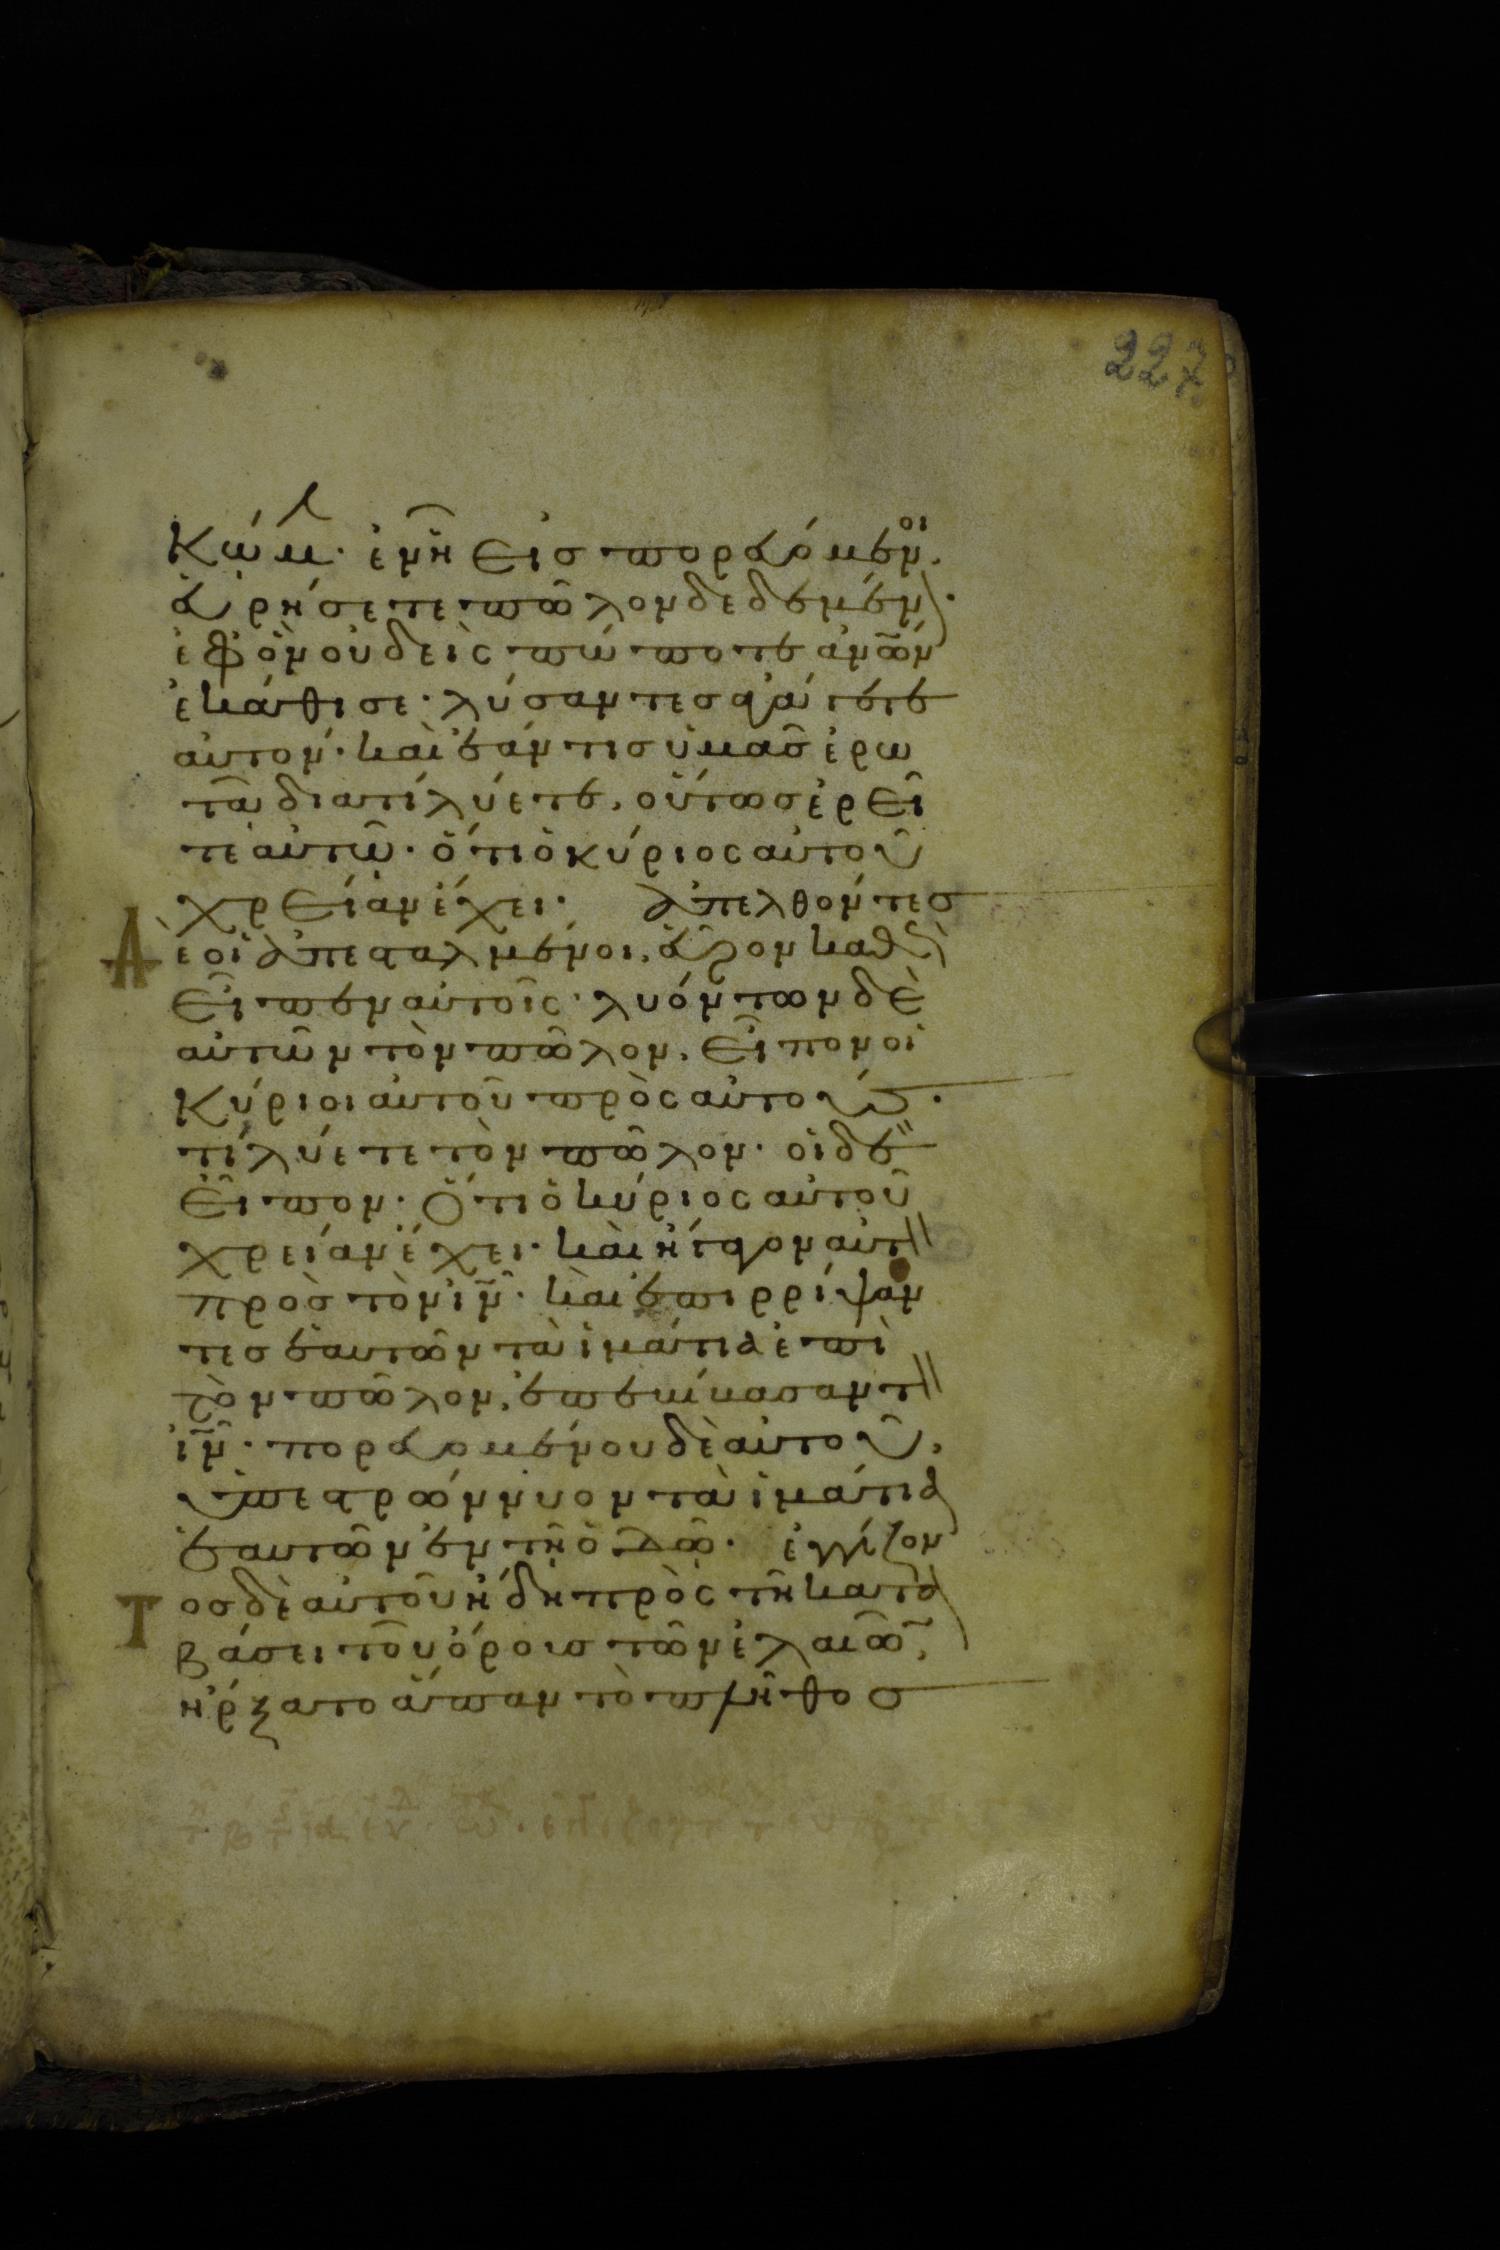 227
κώμ· ἐν ἧ εἰσπορευόμενοι,
εὑρήσετε πῶλον δεδεμέν·
ἐφ' ὃν οὐδεὶς πώποτε ἀνων
ἐκάθισε· λύσαντες ἀγάγετε
αὐτον· καὶ ἐάν τις ὑμᾶς ἐρω
τᾶ διατί λύετε, οὕτως ἐρεῖ
τε αὐτῶ· ὅτι ὁ κύριος αὐτοῦ
χρείαν ἔχει· ἀπελθόντες
Δ
ε οἱ ἀπεσταλμένοι, εὗρον καθὼ
εἶπεν αὐτοῖς· λυόντων δὲ
αὐτῶν τὸν πῶλον, εἶπον οἱ
κύριοι αὐτοῦ πρὸς αὐτούς·
τί λύετε τὸν πῶλον· οἱ δὲ
εἶπον· Ὅτι ὁ κύριος αὐτοῦ
χρείαν ἔχει· καὶ ἤγαγον αὐτ
πρὸς τὸν ιν· καὶ ἐπιρρίψαν
τες ἑαυτῶν τὰ ἱμάτια ἐπὶ
τὸν πῶλον, ἐπεκίκασαν τ
ιν· πορευομένου δὲ αὐτοῦ,
ὑπεστρώννυον τὰ ἱμάτια
ἑαυτῶν ἐν τῆ ὁδῶ· ἐγγίζον
Τ
οσ δὲ αὐτοῦ ἤδη πρὸς τῆ κατα
βάσει τοῦ ὄρους τῶν ἐλαιῶ,
ἤρξατο ἅπαν τὸ πλῆθος